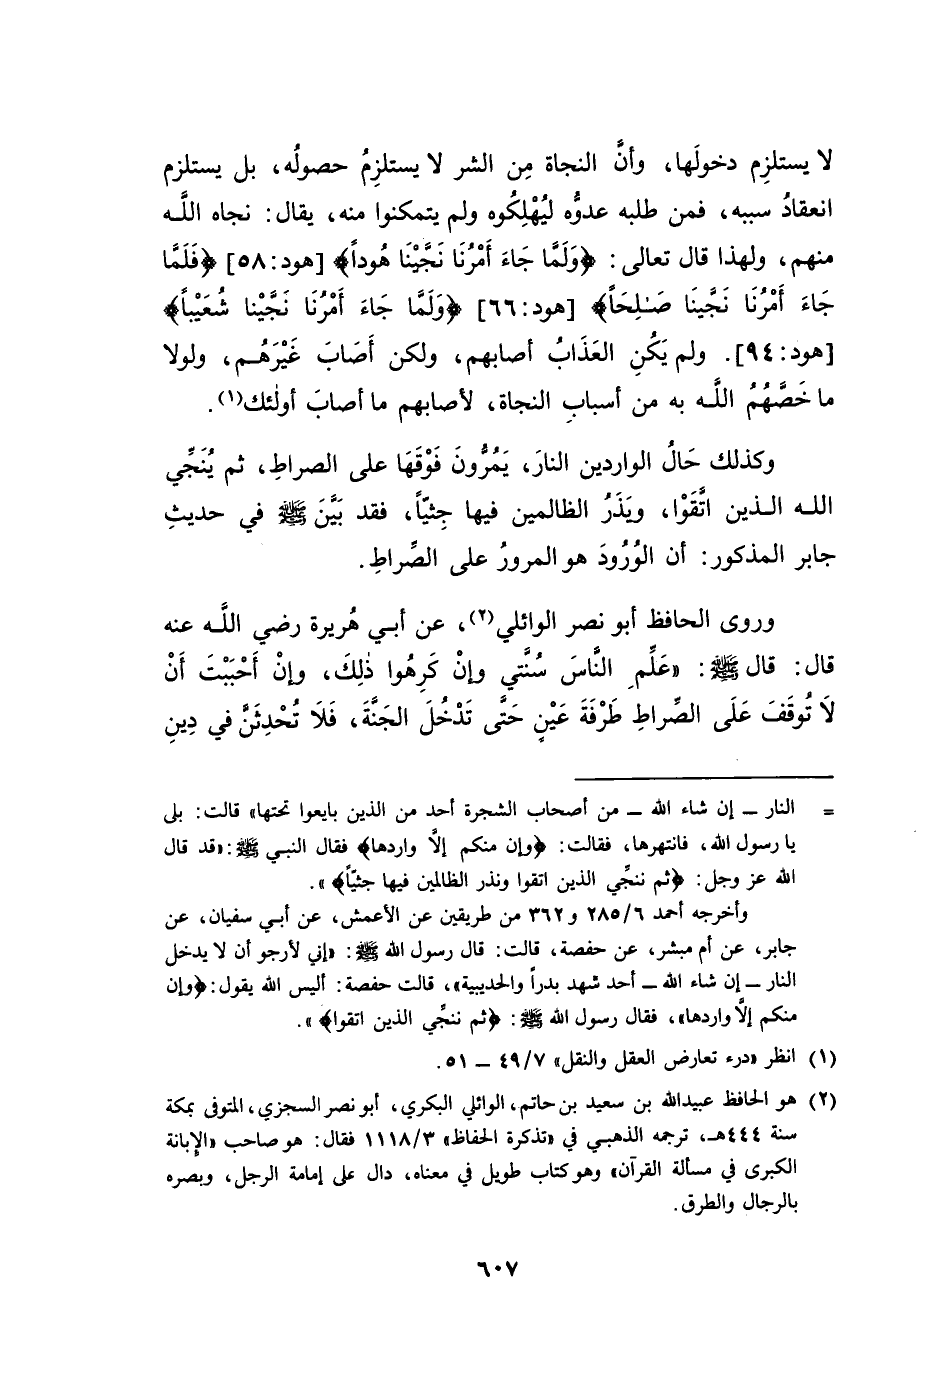 لا يستلزِم دخولَها، وأنَّ النجاة مِن الشر لا يستلزِمُ حصولُه، بل يستلزم
انعقادُ سببه، فمن طلبه عدوُّه ليُهْلِكُوه ولم يتمكنوا منه، يقال: نجاه اللَّه
منهم، ولهذا قال تعالى: ﴿وَلَمَّا جَاءَ أَمْرُنَا نَجَّيْنَا هُوداً﴾ [هود:٥٨] ﴿فَلَمَّا
جَاءَ أَمْرُنَا نَجَّينَا صَـٰلِحَاً﴾ [هود:٦٦] ﴿وَلَمَّا جَاءَ أَمْرُنَا نَجَّيْنا شُعَيْباً﴾
[هود:٩٤]. ولم يَكُنِ العَذَابُ أصابهم، ولكن أَصَابَ غَيْرَهُم، ولولا
ما خَصَّهُمُ اللَّه به من أسبابِ النجاة، لأصابهم ما أصابَ أولٰئك(١).
وكذلك حَالُ الواردين النارَ، يَمُرُّونَ فَوْقَهَا على الصراطِ، ثم يُنَجِّي
اللـه الـذين اتَّقَوْا، ويَذَرُ الظالمين فيها جِثِيّاً، فقد بَيَّنَ ﷺ في حديثِ
جابر المذكور: أن الوُرُودَ هو المرورُ على الصِّراطِ.
وروى الحافظ أبو نصر الوائلي(٢)، عن أبـي هُريرة رضي اللَّـه عنه
قال: قال ﷺ: «عَلِّمِ النَّاسَ سُنَّتي وإنْ كَرِهُوا ذٰلِكَ، وإنْ أَحْبَبْتَ أَنْ
لَا تُوقَفَ عَلَى الصِّراطِ طَرْفَةَ عَيْنٍ حَتَّى تَدْخُلَ الجَنَّةَ، فَلَا تُحْدِثَنَّ في دِينِ
= النار ــ إن شاء الله ــ من أصحاب الشجرة أحد من الذين بايعوا تحتها» قالت: بلى
يا رسول الله، فانتهرها، فقالت: ﴿وإن منكم إلَّا واردها﴾ فقال النبـي ﷺ: «قد قال
الله عز وجل: ﴿ثم ننجِّي الذين اتقوا ونذر الظالمين فيها جثيّاً﴾».
وأخرجه أحمد ٢٨٥/٦ و ٣٦٢ من طريقين عن الأعمش، عن أبـي سفيان، عن
جابر، عن أم مبشر، عن حفصة، قالت: قال رسول الله ﷺ: «إني لأرجو أن لا يدخل
النار ــ إن شاء الله ــ أحد شهد بدراً والحديبية»، قالت حفصة: أليس الله يقول: ﴿وإن
منكم إلَّا واردها»، فقال رسول الله ﷺ: ﴿ثم ننجِّي الذين اتقوا﴾».
(١) انظر «درء تعارض العقل والنقل» ٤٩/٧ ــ ٥١.
(٢) هو الحافظ عبيدالله بن سعيد بن حاتم، الوائلي البكري، أبو نصر السجزي، المتوفى بمكة
سنة ٤٤٤هـ، ترجمه الذهبـي في «تذكرة الحفاظ» ١١١٨/٣ فقال: هو صاحب «الإبانة
الكبرى في مسألة القرآن» وهو كتاب طويل في معناه، دال على إمامة الرجل، وبصره
بالرجال والطرق.
٦٠٧